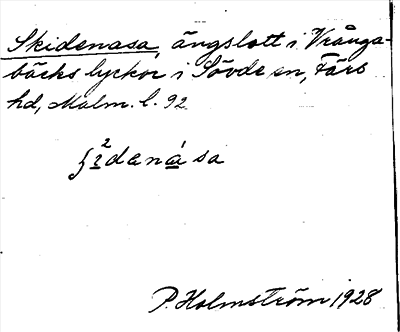 Skidenasa, ängslott i Vrånga-
bäcks lyckor i Sövde sn, Färs
hd, Malm. l. 92
P. Holmström 1928